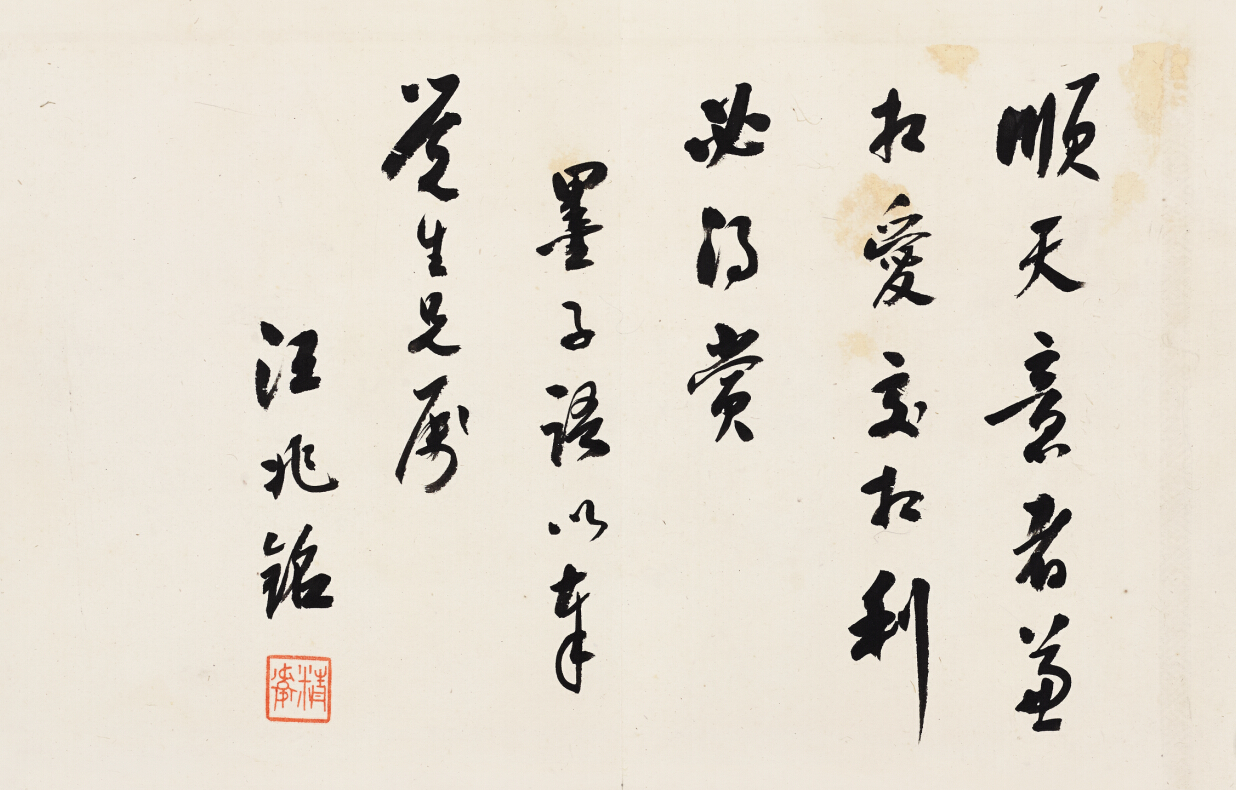 順天意者兼
相愛交相利
必得賞
墨子語以奉
覺生兄屬
汪兆銘
精衛